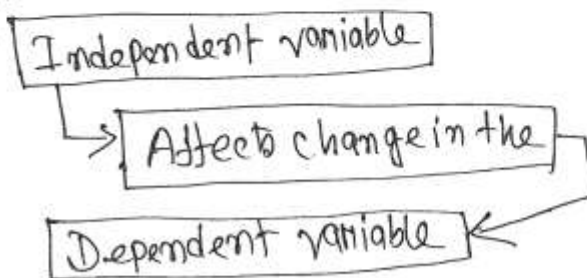 Independent variable
Affects change in the
Dependent variable